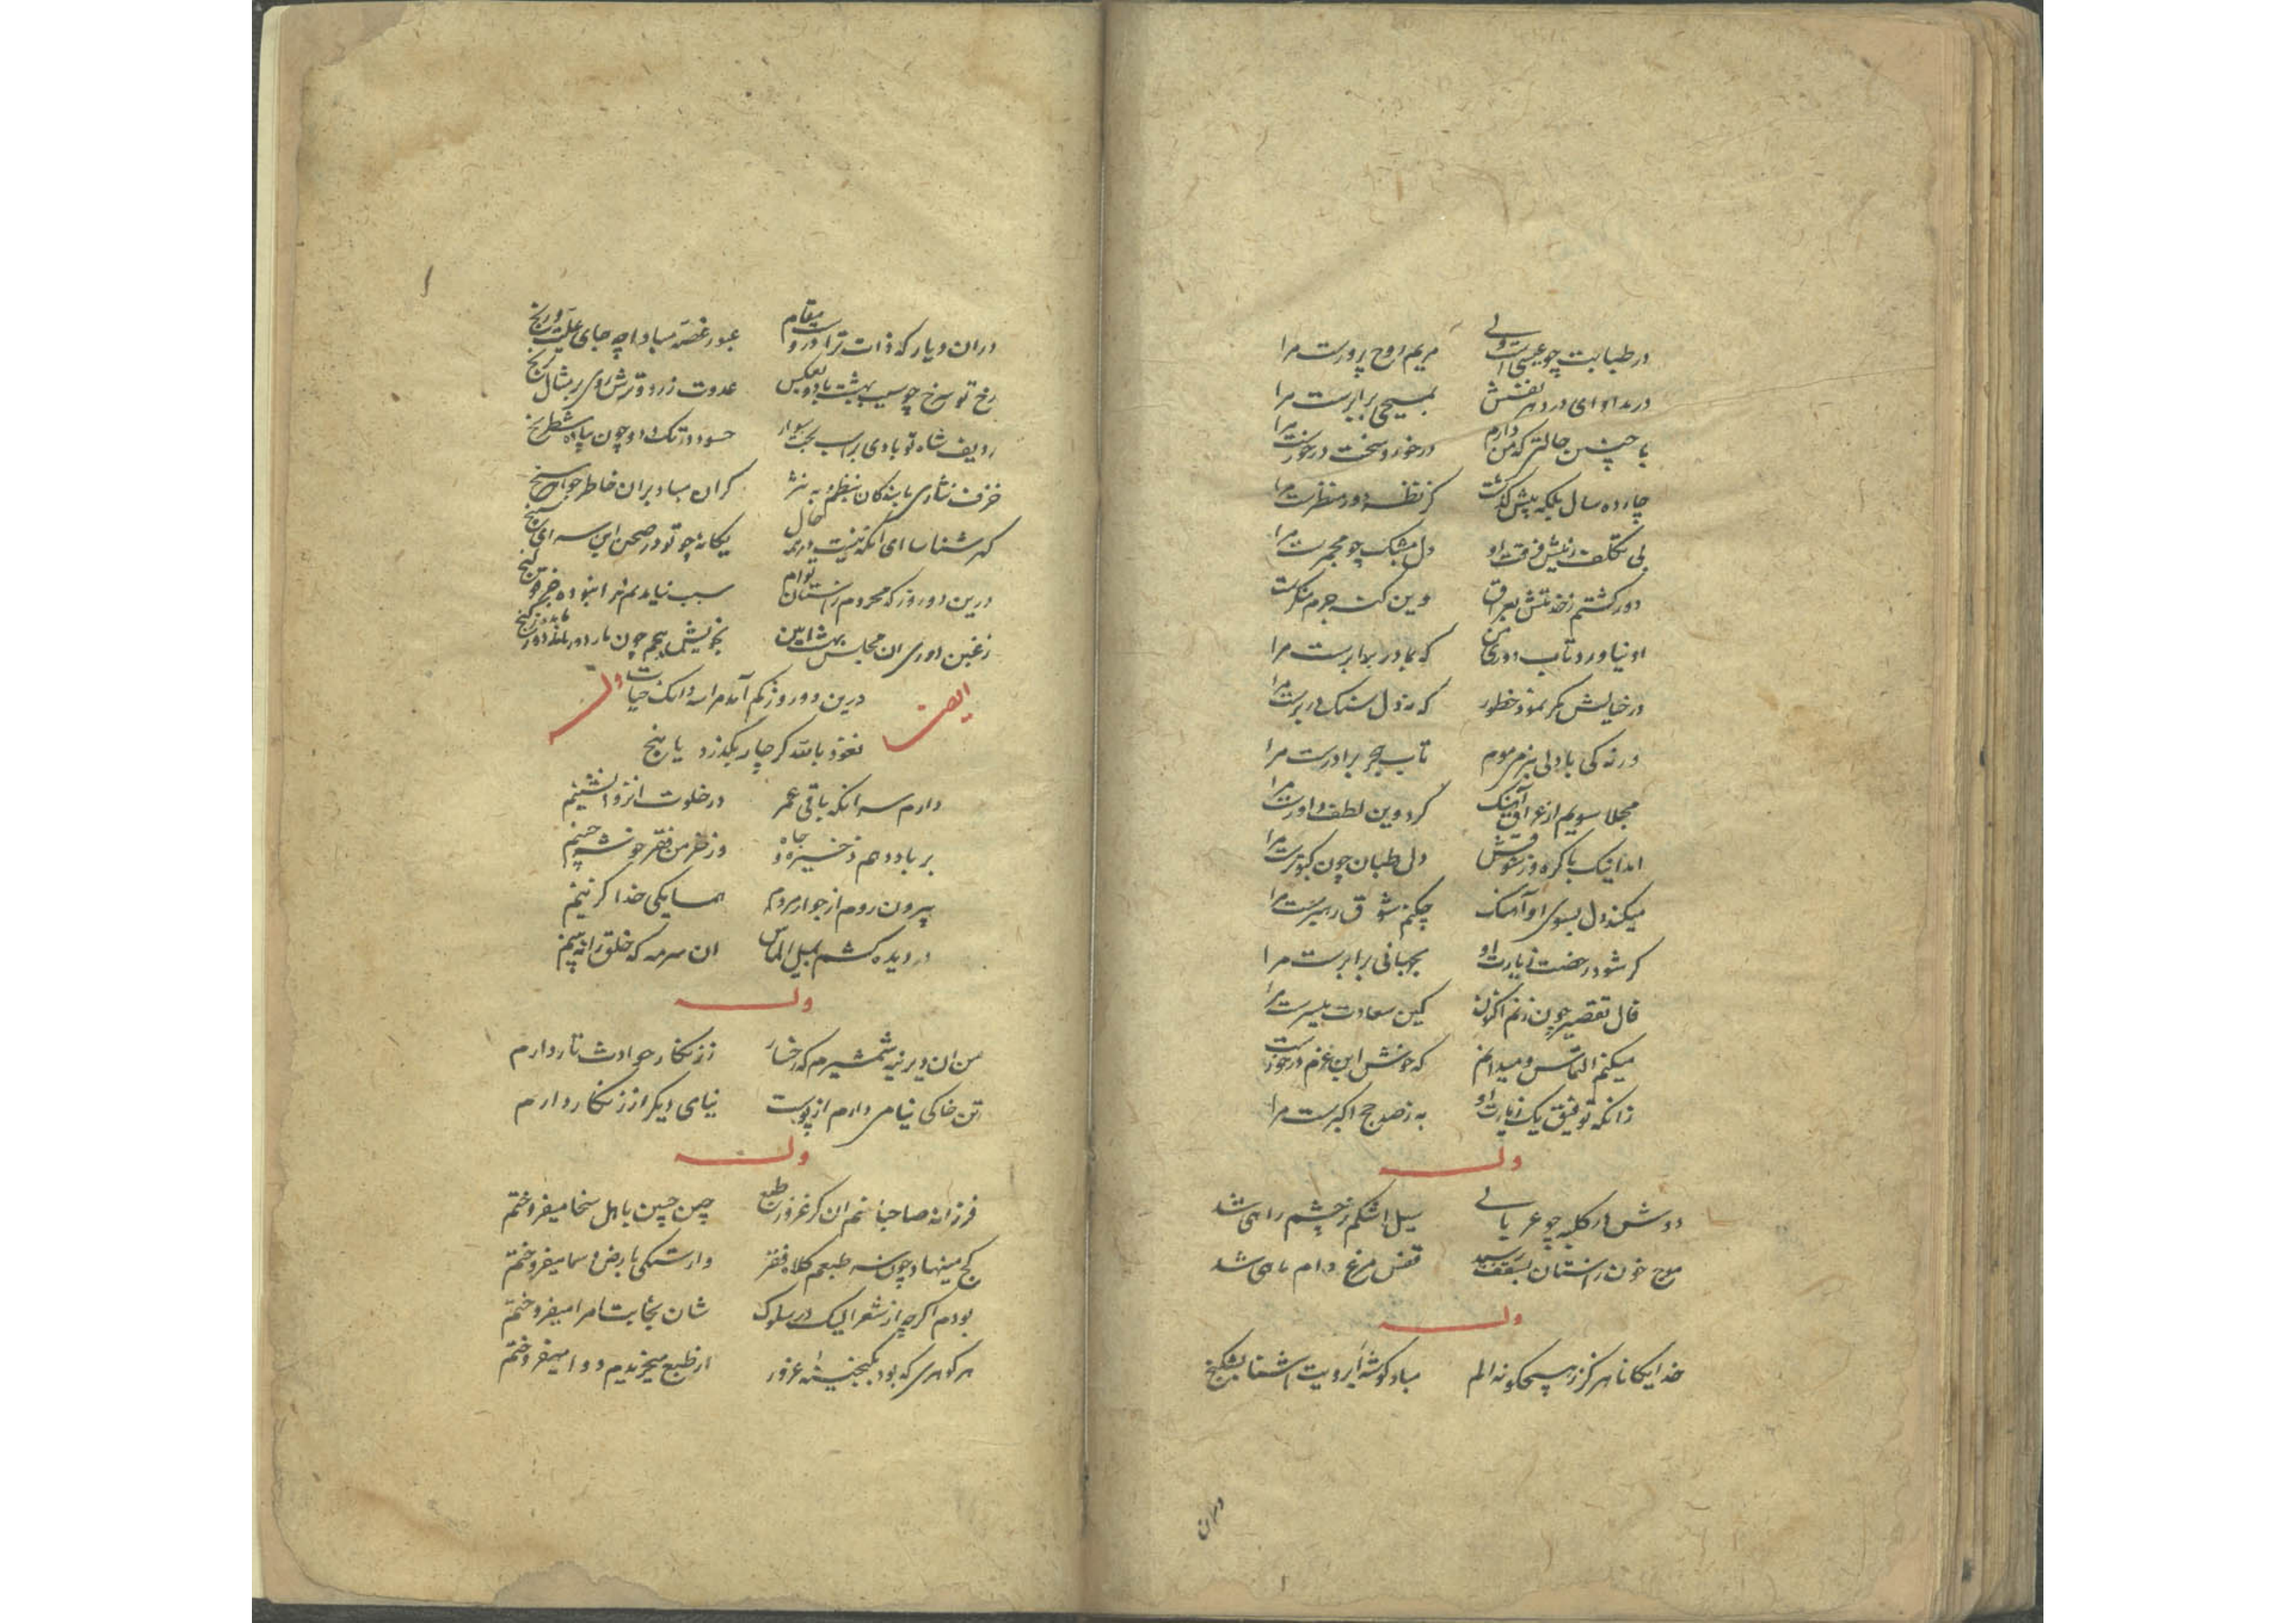 در طبابت چو عیسی است ولی مریم روح پرورست مرا
در مداوای درد هر نفسش بمسیحی برابرست مرا
با چنین حالتی که من دارم درخور و سخت درخورست مرا
چارده سال بلکه پیش گذشت کز نظر دور منظرست مرا
بی تکلف ز نیش فرقت او دل مشبک چو مجمرست مرا
دور گشتم ز خدمتش بعراق وین گنه جرم منکرست
او نیاورد تاب دوری من که بمادر برابرست مرا
در خیالش مگر نمود خطور که نه دل سنگ در برست مرا
ورنه کی با دلی بنرمی موم تاب هجر برادرست مرا
مجملا سویم از عراق آهنگ کرد وین لطف داورست مرا
آمد اینک باگره وز شوقش دل طپان چون کبوترست مرا
میکند دل بسوی او آهنگ چکنم شوق رهبرست مرا
گر شود رخصت زیارت او بجهانی برابرست مرا
فال تقصیر چون زنم اکنون کین سعادت میسرست مرا
میکنم التماس و میدانم که خوش این عزم درخورست
زانکه توفیق یک زیارت او به ز صد حج اکبرست مرا
وله
دوش در کلبه چو عریانی سیل اشکم ز چشم راهی شد
موج خون ز آستان بسقف رسید قفس مرغ دام ماهی شد
وله
خدایگانا هرگز ز هیچگونه الم مباد گوشه ابرویت آشنا بشکنج
دران
دران دیار که ذات ترا دروست مقام عبور غصه مبادا چه جای علت و رنج
رخ تو سرخ چو سیب بهشت باد و بعکس عدوت زرد و ترش روی بر مثال ترنج
ردیف شاه تو بادی بر اسب بخت سوار حسود در تک و دو چون پیاده شطرنج
خزف نثاری ما بندگان بنظم و به نثر گران مباد بران خاطر جواهر سنج
گهر شناسا ای آنکه نیست در همه حال یگانه چو تو در صحن این سرای سپنج
درین دو روز که محرومم ز آستان توام سبب نیامدنم را نبوده جز
ز غبن دوری آن مجلس بهشت آیین بخویش پیچم چون مار دور مانده ز گنج
ایضا درین دو روز نیم آمد مراسه دانگ حیات وله
نعوذ بالله گر چار بگذرد یا پنج
دارم سر آنکه باقی عمر در خلوت انزوا نشینم
بر باد دهم ذخیره جاه وز خرمن فقر خوشه چینم
بیرون روم از جوار مردم همسایگی خدا گزینم
در دیده کشم بمیل الماس آن سرمه که خلق را نه بینم
وله
من آن دیرینه شمشیرم که رخسار ز زنگار حوادث تار دارم
تن خاکی نیامی دارم از پوست نیامی دیگر از زنگار دارم
وله
فرزانه صاحبا منم آن کز غرور طبع چین جبین باهل سخا میفروختم
کج مینهاد چون سر طبعم کلاه فقر وارستگی بارض و سما میفروختم
بودم اگرچه از شعرا لیک در سلوک شان نجابت امرا میفروختم
هر گوهری که بود بگنجینه غرور از طبع میخریدم و وا میفروختم